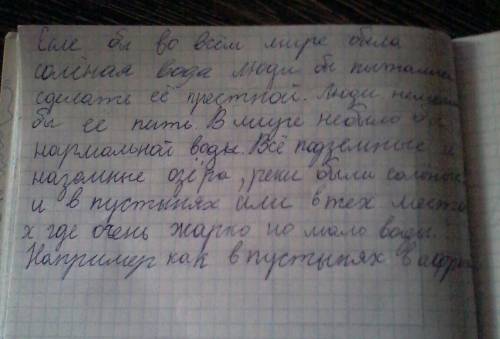 Если бы во всём мире была
солёная вода люди бы пытались
сделать её престной. Люди
бы её пить. В мире небыло бы
нармальной воды. Всё подземные и
назомные озёра, реки были солёные
и в пустынях или в тех места
х где очень жарко но мало воды.
Например как в пустынях в